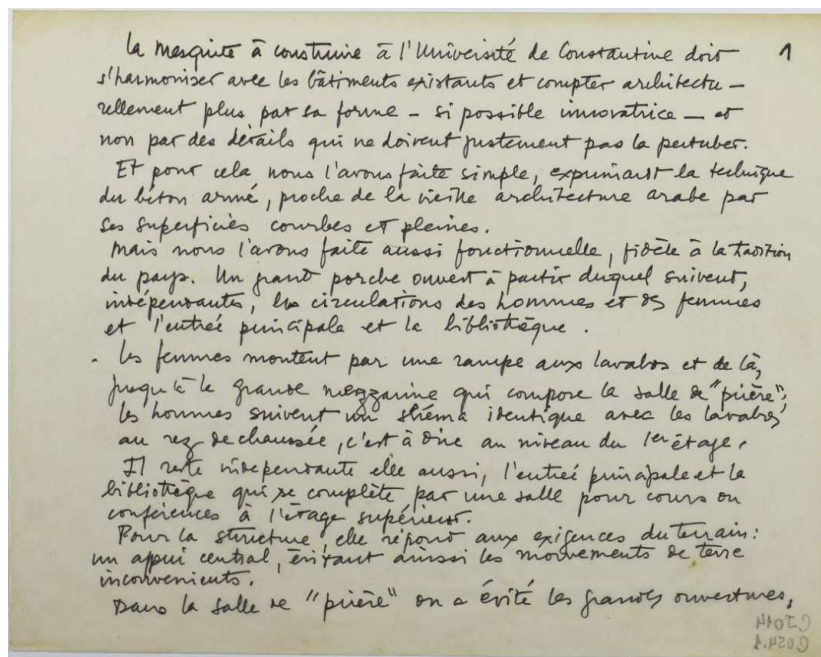 La mosquée à construire à l'Université de Constantine doit
1
s'harmoniser avec les bâtiments existants et compter architectu-
rellement plus par sa forme - si possible innovatrice - et
non par des détails qui ne doivent justement pas la pertuber.
Et pour cela nous l'avons faite simple, exprimant la technique
du béton armé, proche de la vieille architecture arabe par
ses superficies courbes et pleines.
Mais nous l'avons faite aussi fonctionnelle, fidèle à la tradition
du pays. Un grand porche ouvert à partir duquel suivent,
indépendantes, les circulations des hommes et des femmes
et l'entrée principale et la bibliothèque.
. Les femmes montent par une rampe aux lavabos et de là,
jusqu'à la grande mezzanine qui compose la salle de "prière";
les hommes suivent un schéma identique avec les lavabos
au rez de chaussée, c'est à dire au niveau du 1er étage.
Il reste indépendante elle aussi, l'entrée principale et la
bibliothèque qui se complète par une salle pour cours ou
conférences à l'étage supérieur.
Pour la structure, elle répond aux exigences du terrain:
un appui central, évitant ainsi les mouvements de terre
inconvenients.
Dans la salle de "prière" on a évité les grandes ouvertures,
CJ014
C054.1